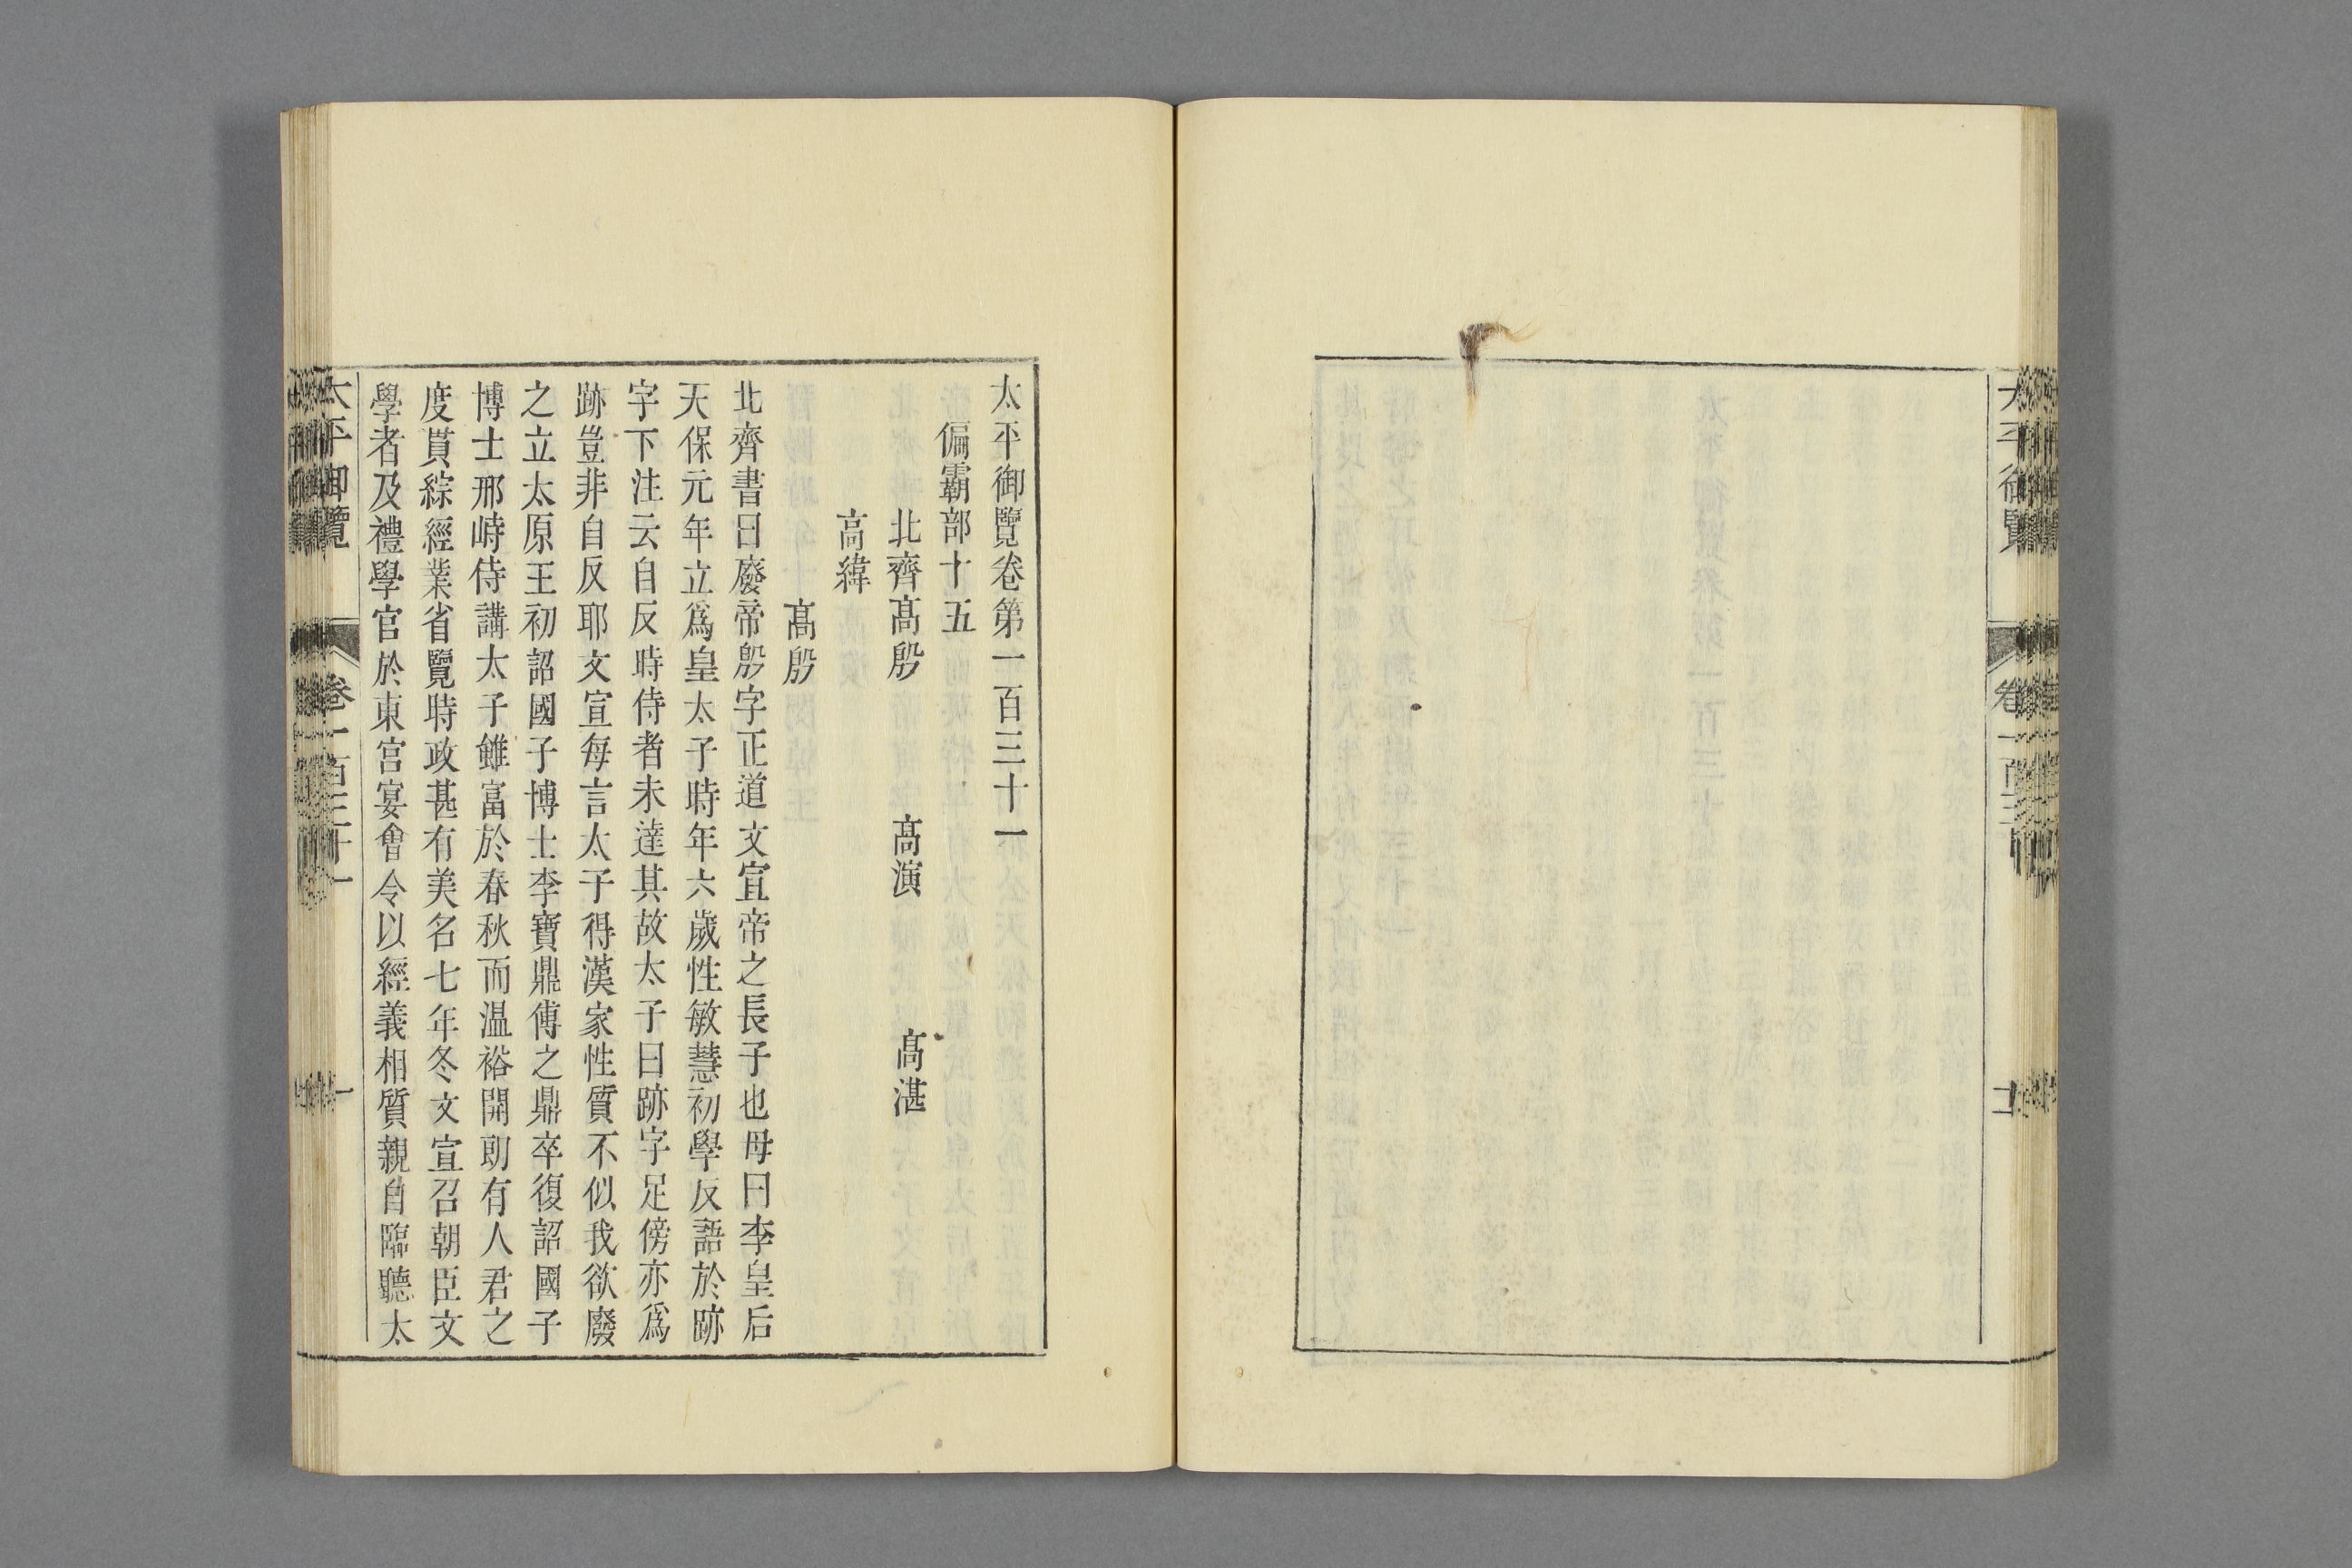 太平御覽卷第一百三十一
偏霸部十五
北齊髙殷 髙演 髙湛
高緯
髙殷
北齊書曰廢帝殷字正道文宣帝之長子也母曰李皇后
天保元年立爲皇太子時年六歲性敏慧初學反語於跡
字下注云自反時侍者未達其故太子曰跡字足傍亦爲
跡豈非自反耶文宣每言太子得漢家性質不似我欲廢
之立太原王初詔國子博士李寶鼎傅之鼎卒復詔國子
博士邢峙侍講太子雖富於春秋而温裕開朗有人君之
度貫綜經業省覽時政甚有美名七年冬文宣召朝臣文
學者及禮學官於東宫宴會令以經義相質親自臨聽太
太平御覽 卷一百三十一 一
太平御覽 卷一百三十